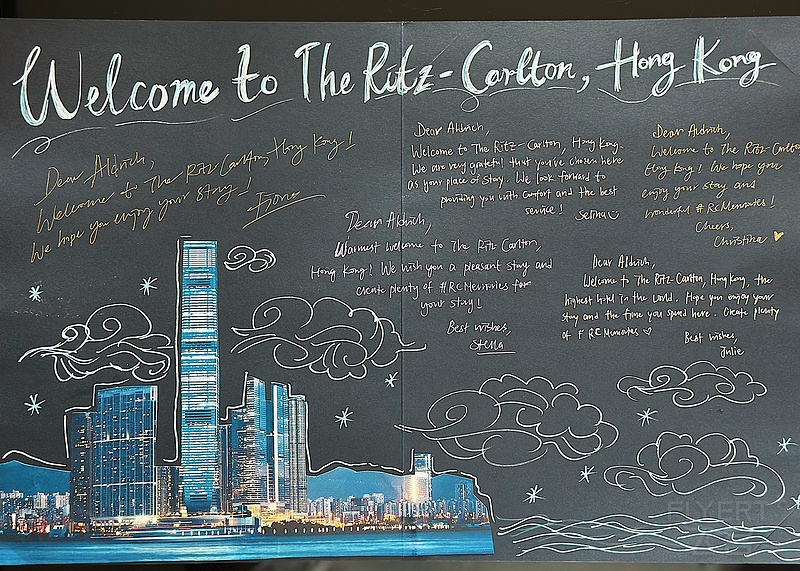 Welcome to The Ritz-Carlton, Hong Kong
Dear Aldrich,
Welcome to The Ritz Carlton, Hong Kong!
We hope you enjoy your stay!
Fiona
Dear Aldrich,
Warmest welcome to The Ritz Carlton,
Hong Kong! We wish you a pleasant stay and
create plenty of #RCMemories for
your stay!
Best wishes,
Stella
Dear Aldrich,
Welcome to The Ritz-Carlton, Hong Kong.
We are very grateful that you've chosen here
as your place of stay. We look forward to
providing you with comfort and the best
service!
Selina
Dear Aldrich,
Welcome to The Ritz-Carlton
Hong Kong! We hope your
enjoy your stay and
wonderful #RCMemories!
Cheers,
Christina
Dear Aldrich,
Welcome to The Ritz-Carlton, Hong Kong, the
highest hotel in the world. Hope you enjoy your
stay and the time you spend here. Create plenty
of # RC Memories
Best wishes,
Julie
FLYERT